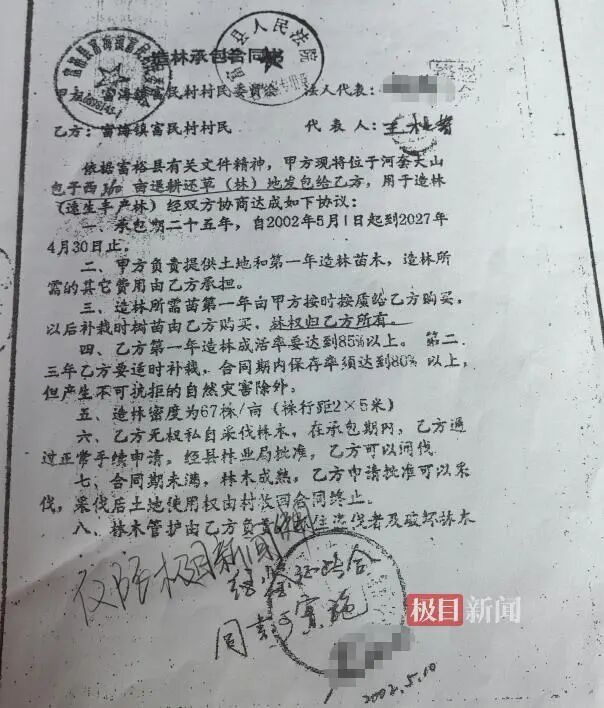 造林承包合同
富裕县人民法院
甲方：富海镇富民村村民委员会 法人代表：
乙方：富海镇富民村村民 代表人：王
依据富裕县有关文件精神，甲方现将位于河套大山
包子西360亩退耕还草（林）地发包给乙方，用于造林
（速生丰产林）经双方协商达成如下协议：
一、承包期二十五年，自2002年5月1日起到2027年
4月30日止。
二、甲方负责提供土地和第一年造林苗木，造林所
需的其它费用由乙方承担。
三、造林所需苗第一年由甲方按时按质给乙方购买，
以后补栽时树苗由乙方购买，林权归乙方所有。
四、乙方第一年造林成活率要达到85%以上。第二、
三年乙方要适时补栽，合同期内保存率须达到80%以上，
但产生不可抗拒的自然灾害除外。
五、造林密度为67株/亩（株行距2×5米）
六、乙方无权私自采伐林木，在承包期内，乙方通
过正常手续申请，经县林业局批准，乙方可以间伐
七、合同期未满，林木成熟，乙方申请批准可以采
伐，采伐后土地使用权由村收回合同终止。
八、林木管护由乙方负责 盗伐者及破坏林木
仅限极目新闻
经鉴证
同意 实施
极目新闻
2002.5.10